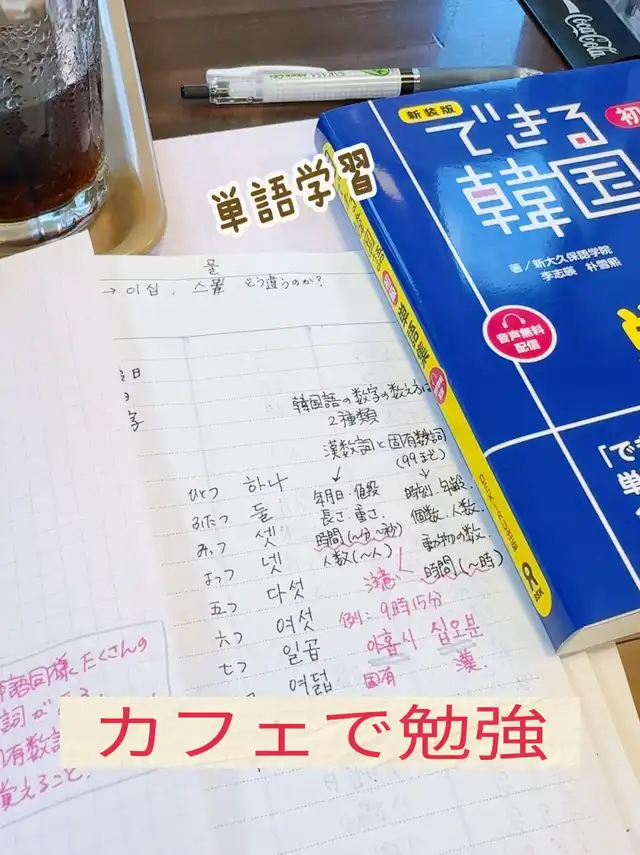 Coca-Cola
新装版
できる
韓国
初
著/新大久保語学院
李志暎 朴雪熙
音声無料
配信
単語学習
물
→ 이십, 스물 どう違うのか?
韓国語の数字の数え方は
2種類
漢数詞と固有数詞
(99まで)
年月日・値段
長さ・重さ.
時間(〜分〜秒)
人数(〜人)
時刻・年齢.
個数・人数.
動物の数.
時間(〜時)
注意
例:9時15分
아홉시 십오분
固有 漢
ひとつ 하나
ふたつ 둘
みっつ 셋
よっつ 넷
五つ 다섯
六つ 여섯
七つ 일곱
여덟
カフェで勉強